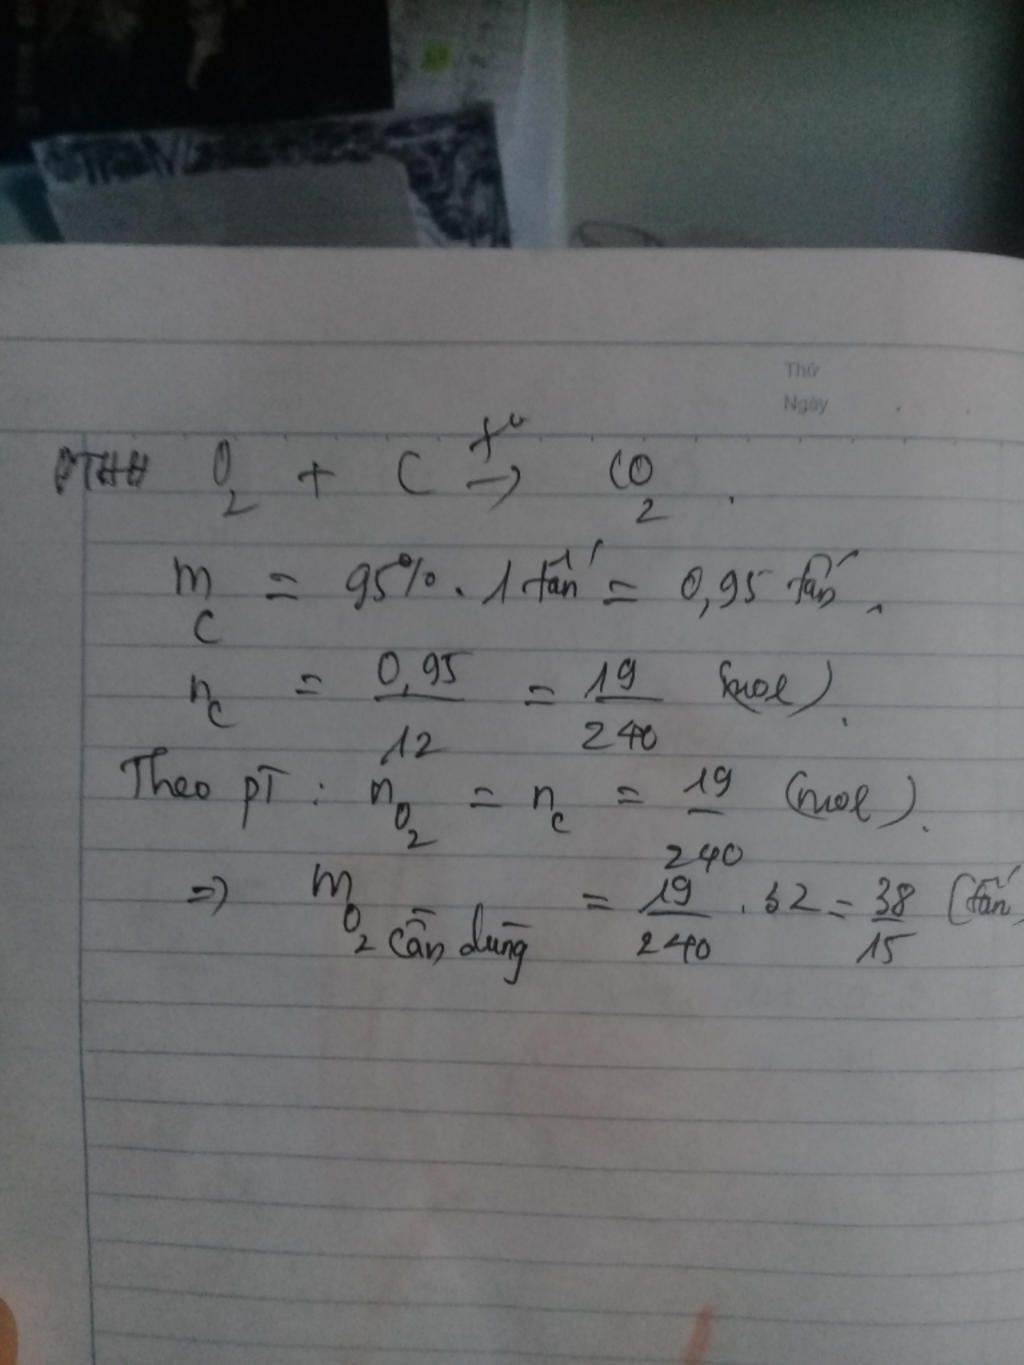 Thứ
Ngày
PTHH O2 + C t° → CO2.
mC = 95% . 1 tấn = 0,95 tấn.
nC = 0,95/12 = 19/240 (mol).
Theo pT : nO2 = nC = 19/240 (mol).
=) mO2 cần dùng = 19/240 . 32 = 38/15 (tấn